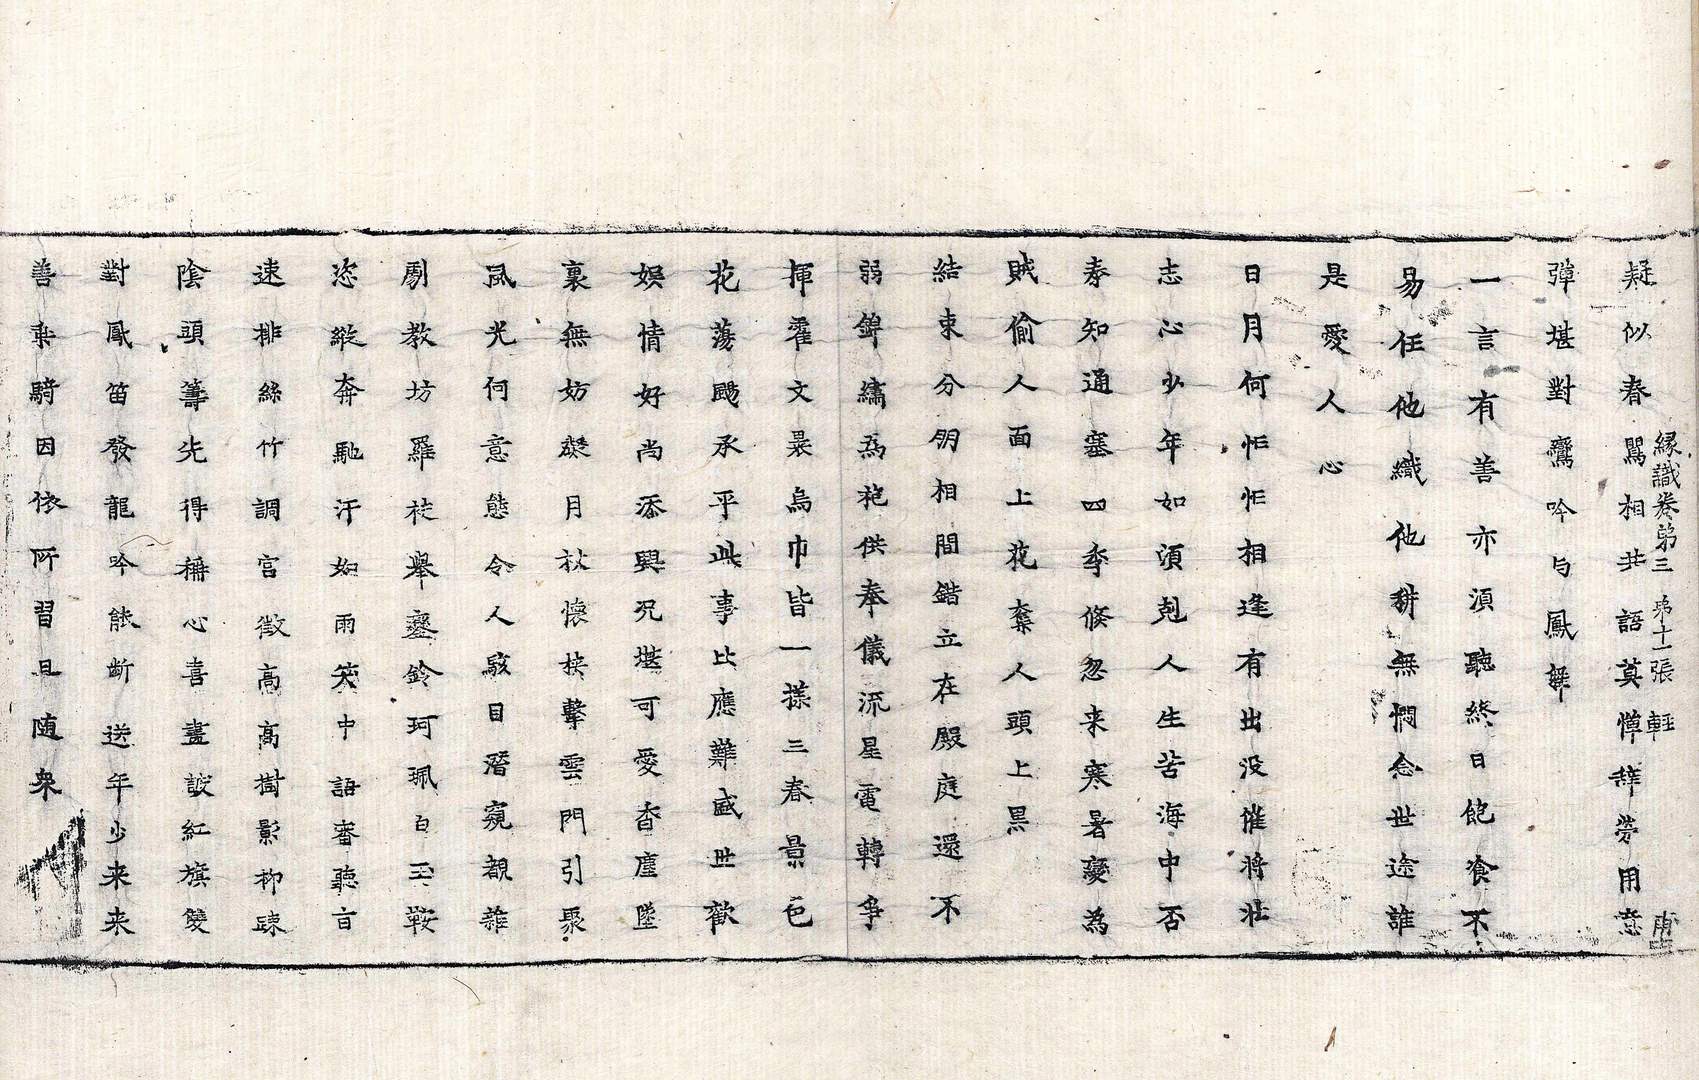 緣識卷第三 第十一張 輕
疑似春鸎相共語莫憚辞勞用意
彈堪對鸞吟与鳳舞
一言有善亦湏聽終日飽飡不
易任他織他耕無憫念世途誰
是愛人心
日月何忙忙相逢有出没催將壯
志心少年如湏剋人生苦海中否
泰知通塞四季倏忽来寒暑變為
賊偷人面上花棄人頭上黒
結束分明相間錯立在殿庭還不
弱錦繡為袍供奉儀流星電轉爭
揮霍文晸烏巾皆一樣三春景色
花蕩颺承平此事比應難盛世歡
娯情好尚添興况堪可愛香塵墜
裏無妨礙月杖懷挾擊雲門引聚
風光何意態令人駭目潛窺覩雜
劇教坊羅杖舉鑾鈴珂珮白玉鞍
恣縱奔馳汗如雨笑中語審聽言
速排絲竹調宮徵高高樹影柳踈
陰頭籌先得稱心喜畫皷紅旗雙
對鳳笛發龍吟能斷送年少来来
善乗騎因依所習且随衆